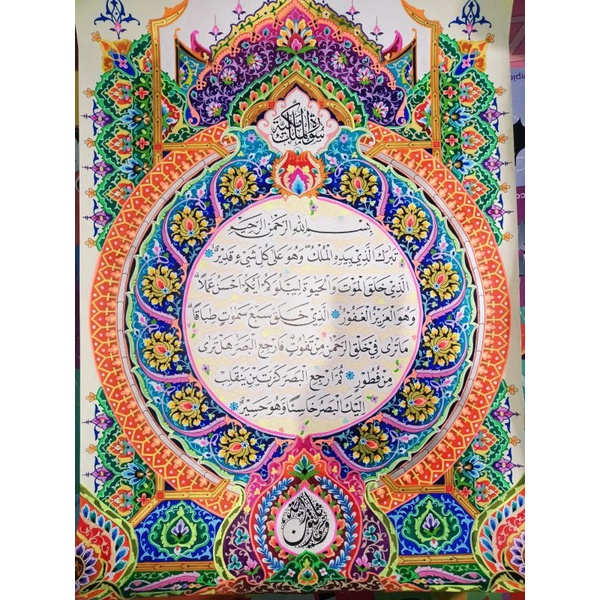 سورة الملك مكية
بسم الله الرحمن الرحيم
تبرك الذي بيده الملك وهو على كل شيء قدير
الذي خلق الموت والحيوة ليبلوكم ايكم احسن عملا
وهو العزيز الغفور الذي خلق سبع سموت طباقا
ما ترى في خلق الرحمن من تفوت فارجع البصر هل ترى
من فطور ثم ارجع البصر كرتين ينقلب
اليك البصر خاسئا وهو حسير